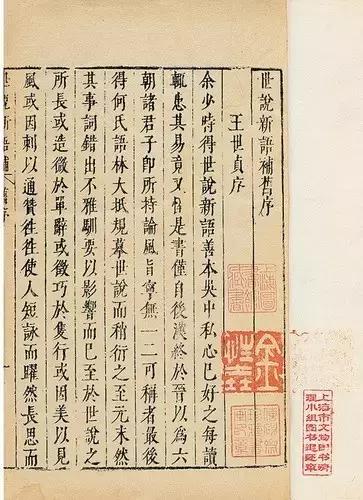 世說新語補舊序
王世貞序
余少時得世說新語善本吳中私心已好之每讀
輒患其易竟又怪是書僅自後漢終於晉以為六
朝諸君子即所持論風旨寧無一二可稱者最後
得何氏語林大抵規摹世說而稍衍之至元末然
其事詞錯出不雅馴要以影響而已至於世說之
所長或造微於單辭或徵巧於隻行或因美以見
風或因刺以通贊往往使人短詠而躍然長思而
上海市文物图书清
理小组图书退还章